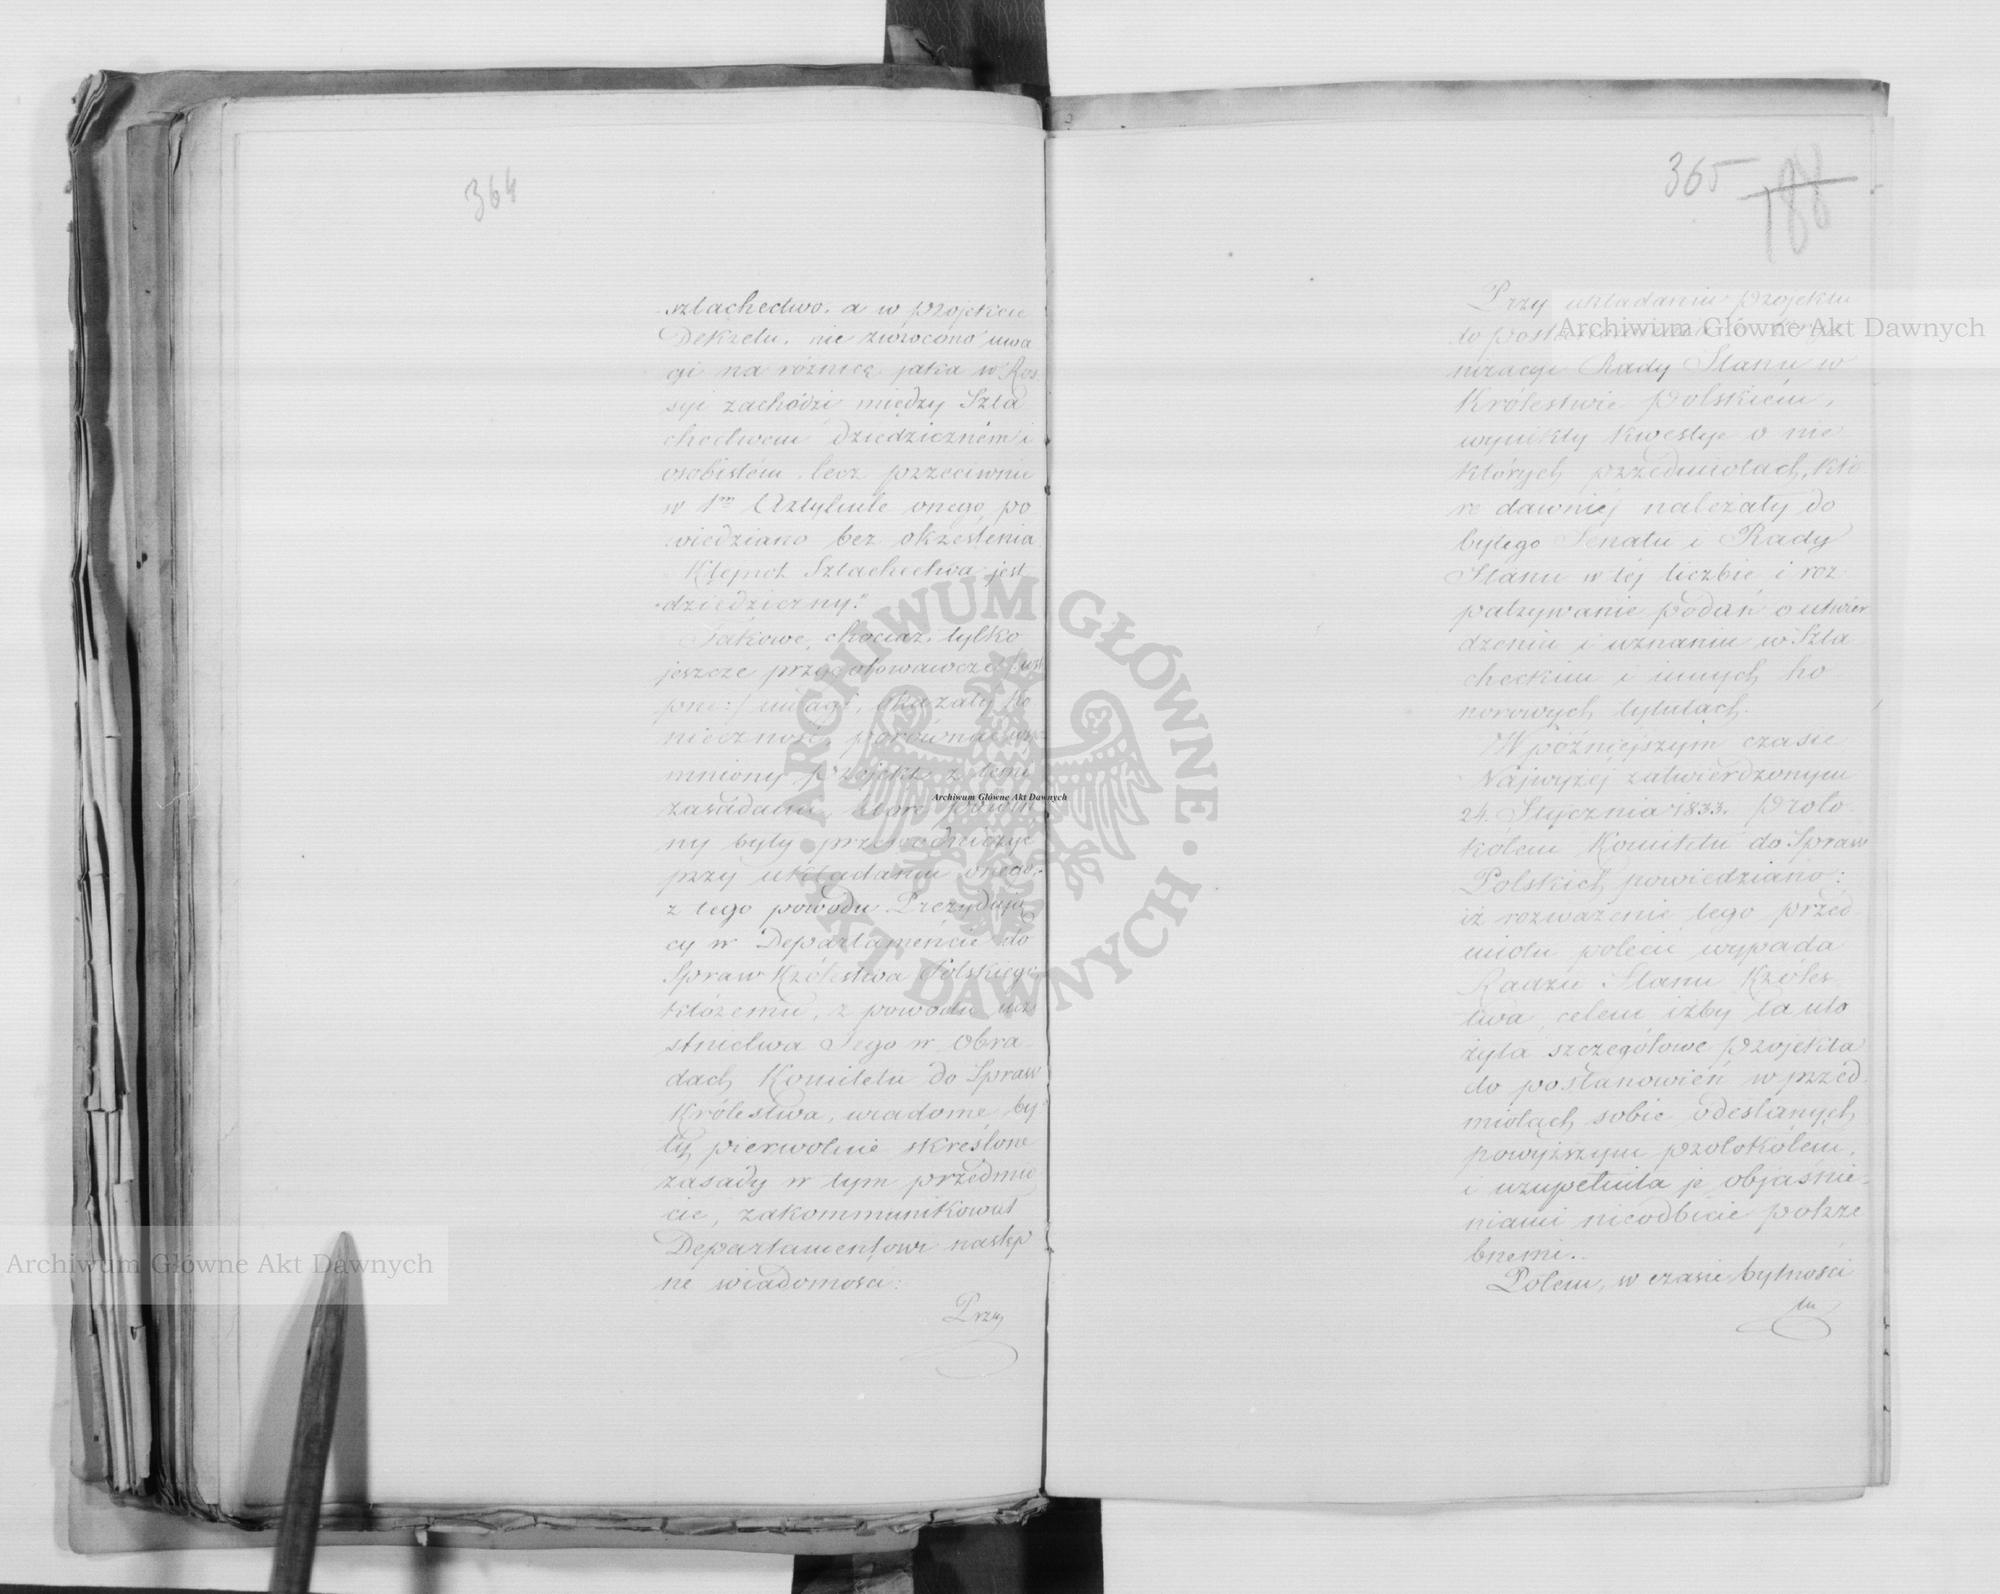 364
szlachectwo, a w projekcie
Dekretu, nie zwrócono uwa
gi na różnicę jaka w Ros.
syi zachodzi między Szla
chectwem dziedzicznem i
osobistém, lecz przeciwnie
w 1m Artykule onego, po
wiedziano bez określenia
Klejnot Szlachectwa jest
„dziedziczny."
Takowe, chociaż tylko
jeszcze przygotowawcze
uwagi, okazały ko
nieczność, porównać
mniony projekt z temi
zasadami, które powin
ny były przewodniczyć
przy układaniu onego;
z tego powodu Prezydują
cy w Departamencie do
Spraw Królestwa Polskiego,
któremu, z powodu ucze
stnictwa Jego w Obra
dach Komitetu do Spraw
Królestwa, wiadome by
ły, pierwotnie skréślone
zasady w tym przedmio
cie, zakommunikował
Departamentowi następ
ne wiadomości:
Przy
365
188
Przy układaniu projektu
do postanowienia
nizacyi Rady Stanu w
Królestwie Polskiém,
wynikły kwestye o nie
których przedmiotach, któ
re dawniéj należały do
byłego Senatu i Rady
Stanu w téj liczbie i roz
patrywanie podań o utwier
dzeniu i uznaniu w Szla
checkim i innych ho
norowych tytułach.
W późniejszym czasie
Najwyżéj zatwierdzonym
24. Stycznia 1833. proto
kółem Komitetu do Spraw
Polskich powiedziano:
iż rozważenie tego przed
miotu polecić wypada
Radzie Stanu Króles
twa, celem iżby ta uło
żyła szczegółowe projekta
do postanowień w przed
miotach sobie odesłanych
powyższym protokółem,
i uzupełniła je objaśnie
niami nieodbicie potrze
bnemi.
Potem, w czasie bytności
tu
Archiwum Główne Akt Dawnych
Archiwum Główne Akt Dawnych
Archiwum Główne Akt Dawnych
ARCHIWUM GŁÓWNE · AKT DAWNYCH ·